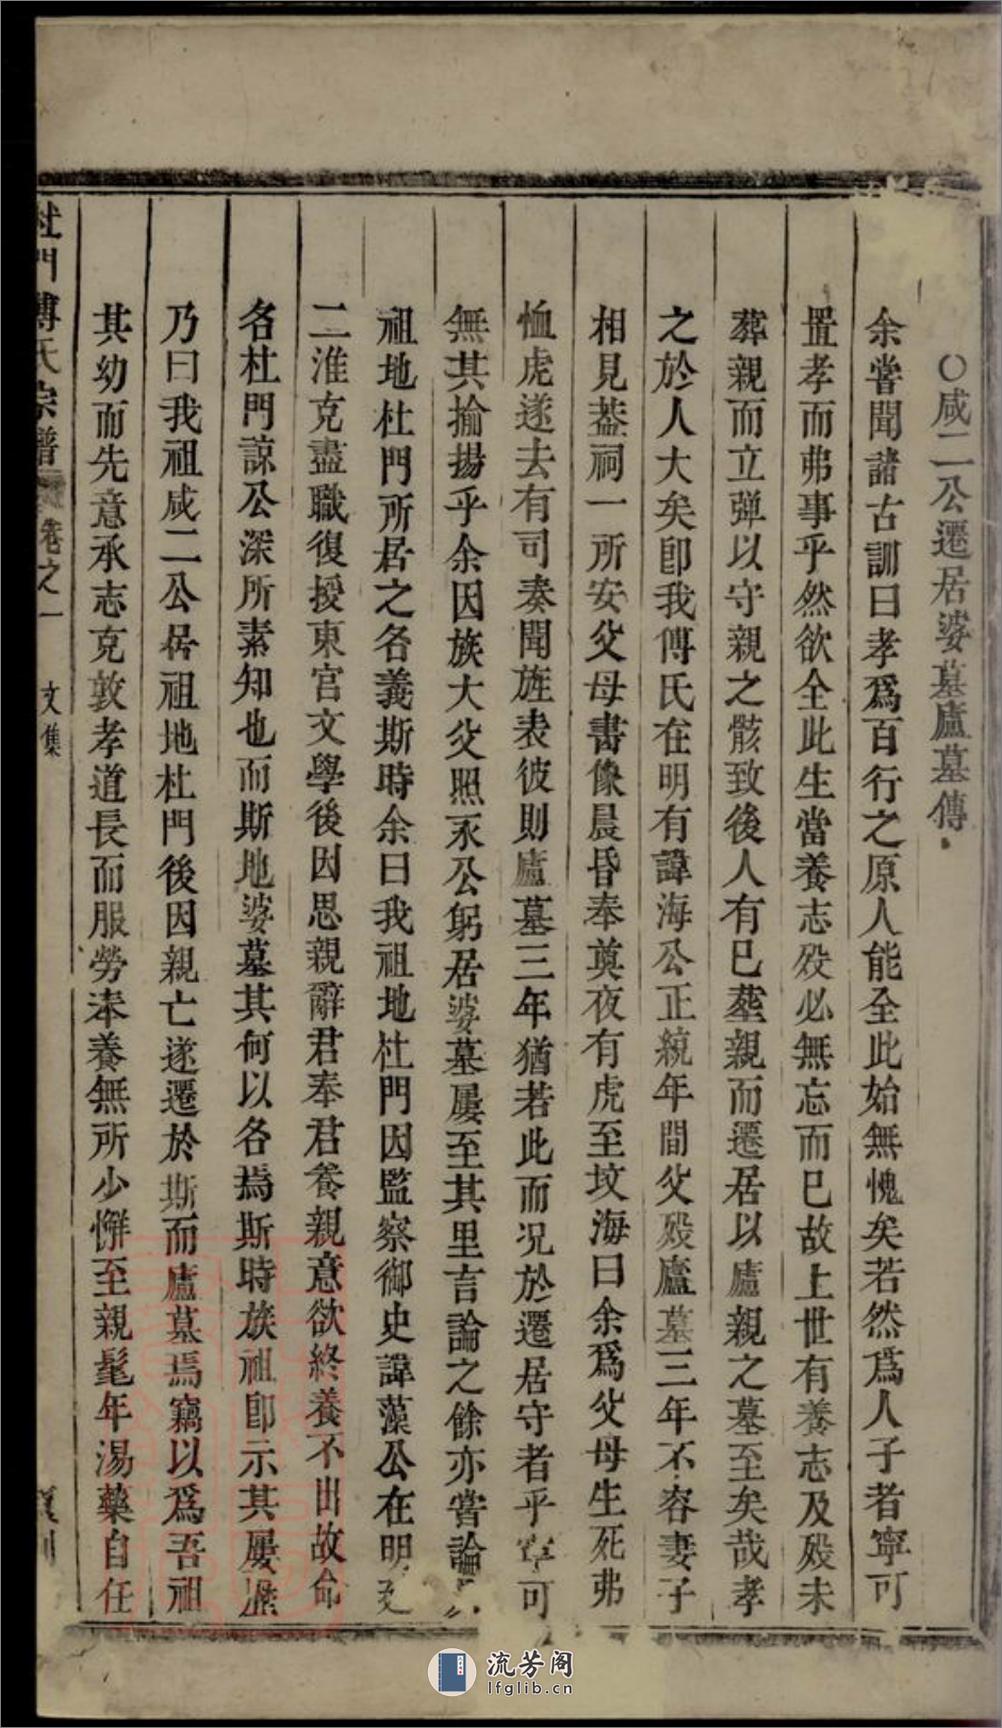 ○咸二公遷居婆墓廬墓傳
余嘗聞諸古訓曰孝爲百行之原人能全此始無愧矣若然爲人子者寧可
置孝而弗事乎然欲全此生當養志殁必無忘而已故上世有養志及殁未
葬親而立弹以守親之骸致後人有已塟親而遷居以廬親之墓至矣哉孝
之於人大矣卽我傅氏在明有諱海公正統年間父殁廬墓三年不容妻子
相見葢祠一所安父母書像晨昏奉奠夜有虎至坟海曰余爲父母生死弗
恤虎遂去有司奏聞旌表彼則廬墓三年猶若此而况於遷居守者乎寧可
無其揄揚乎余因族大父照永公躬居婆墓屢至其里言論之餘亦嘗論
祖地杜門所居之名義斯時余曰我祖地杜門因監察御史諱藻公在明
二淮克盡職復授東宫文學後因思親辭君奉君養親意欲終養不出故命
名杜門諒公深所素知也而斯地婆墓其何以名焉斯時族祖卽示其屢歷
乃曰我祖咸二公居祖地杜門後因親亡遂遷於斯而廬墓焉竊以爲吾祖
其幼而先意承志克敦孝道長而服勞奉養無所少懈至親髦年湯藥自任
杜門傅氏宗譜 卷之一 文集
流芳阁
lfglib.cn